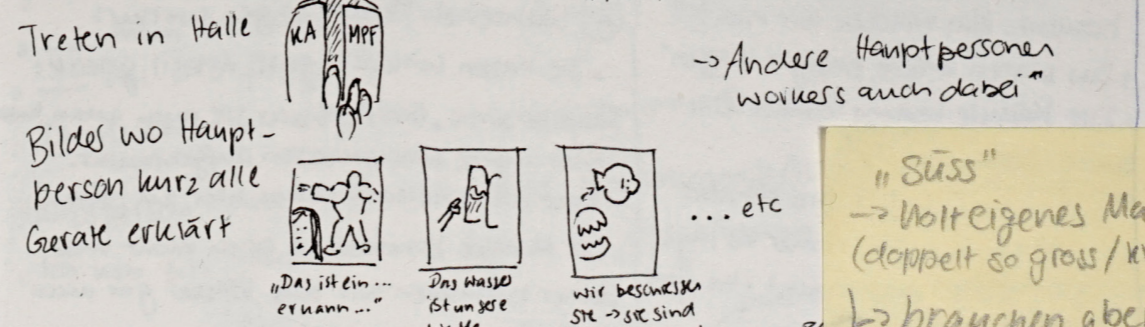 Treten in Halle
KA MPF
→ Andere Hauptpersonen
workers auch dabei"
Bilder wo Haupt-
person kurz alle
Geräte erklärt
... etc
"Das ist ein...
er kann..."
Das Wasser
ist unsere
wir beschiessen
sie → sie sind
"süss"
→ Holt eigenes
(doppelt so gross /
↳ brauchen abe